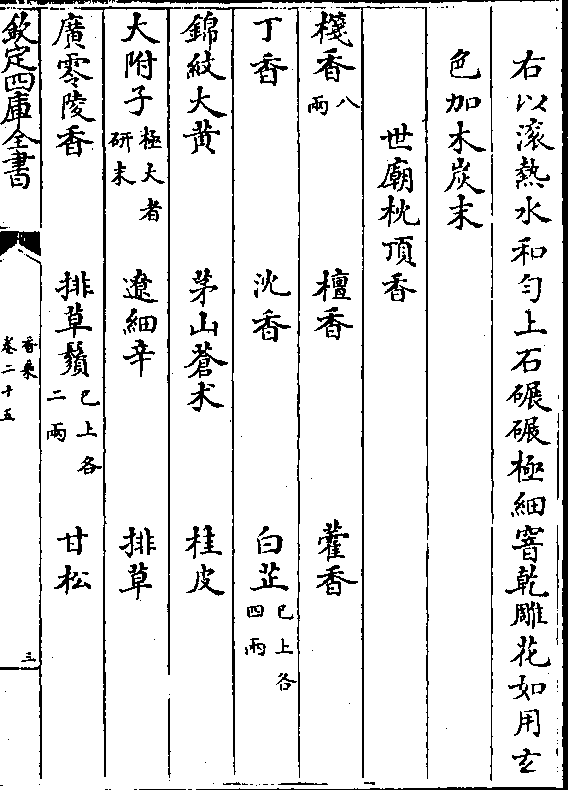 右以滚熱水和勻上石碾碾極細窨乾雕花如用玄
色加木炭末
世廟枕頂香
棧香八兩 檀香 藿香
丁香 沈香 白芷已上各四兩
錦紋大黄 茅山蒼术 桂皮
大附子極大者研末 遼細辛 排草
廣零陵香 排草鬚已上各二兩 甘松
欽定四庫全書 香乗卷二十五 三